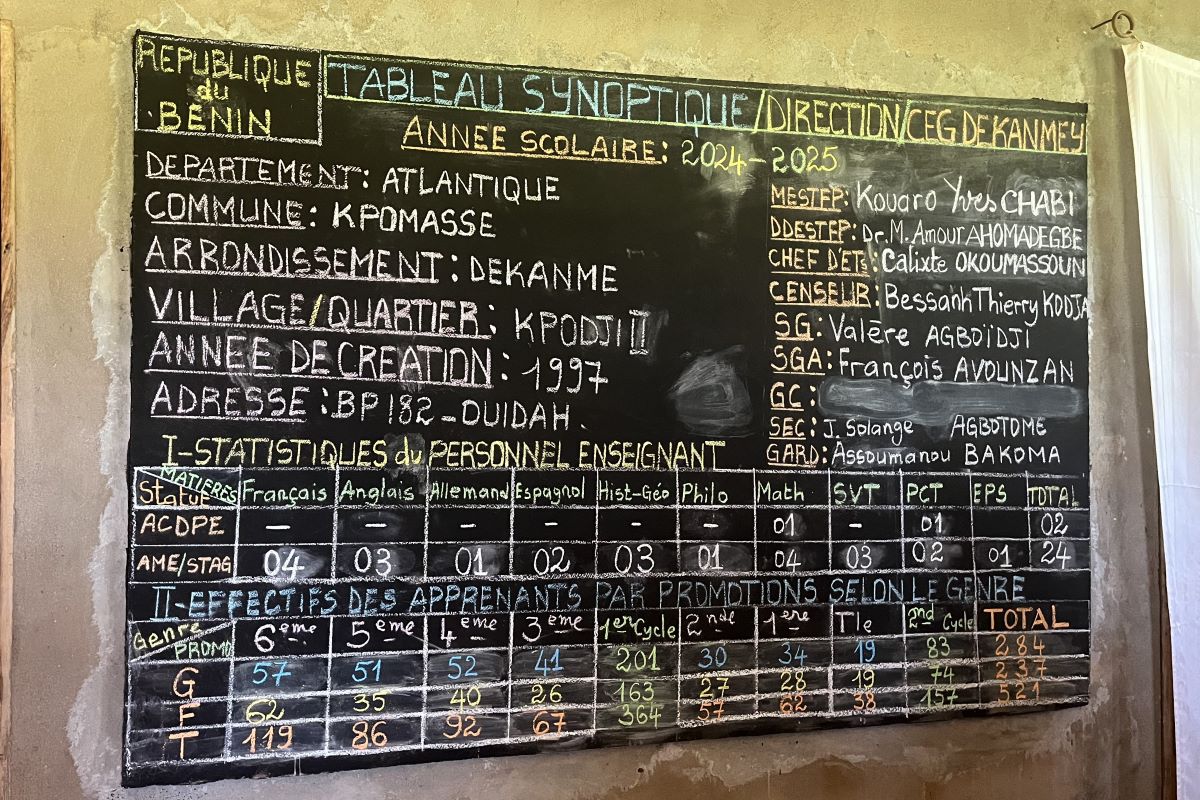 REPUBLIQUE
du
BENIN
TABLEAU SYNOPTIQUE/DIRECTION/CEG DEKANMEY
ANNEE SCOLAIRE: 2024-2025
DEPARTEMENT: ATLANTIQUE
COMMUNE: KPOMASSE
ARRONDISSEMENT: DEKANME
VILLAGE/QUARTIER: KPODJI II
ANNEE DE CREATION: 1997
ADRESSE: BP 182-OUIDAH.
MESTFP: Kouaro Yves CHABI
DDESTFP: Dr. M. Amour AHOMADEGBE
CHEF D'ETs: Calixte OKOUMASSOUN
CENSEUR: Bessanh Thierry KODJA
SG: Valère AGBOÏDJI
SGA: François AVOUNZAN
GC:
SEC: J. Solange AGBOTOME
GARD: Assoumanou BAKOMA
I-STATISTIQUES du PERSONNEL ENSEIGNANT
MATIERES Statue Français Anglais Allemand Espagnol Hist-Géo Philo Math SVT PCT EPS TOTAL
ACDPE - - - - - - 01 - 01 02
AME/STAG 04 03 01 02 03 01 04 03 02 01 24
II-EFFECTIFS DES APPRENANTS PAR PROMOTIONS SELON LE GENRE
Genre PROMO 6eme 5eme 4eme 3eme 1er Cycle 2nde 1ere Tle 2nd Cycle TOTAL
G 57 51 52 41 201 30 34 19 83 284
F 62 35 40 26 163 27 28 19 74 237
T 119 86 92 67 364 57 62 38 157 521